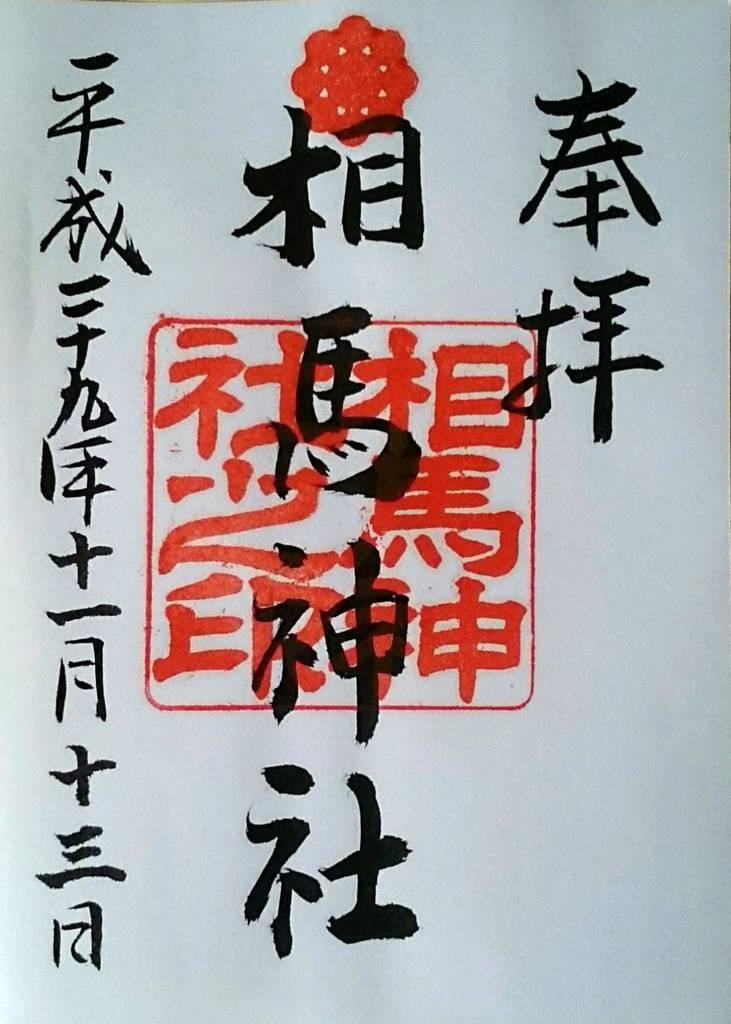 奉拝
相馬神社
相馬神
社之印
平成二十九年十一月十三日